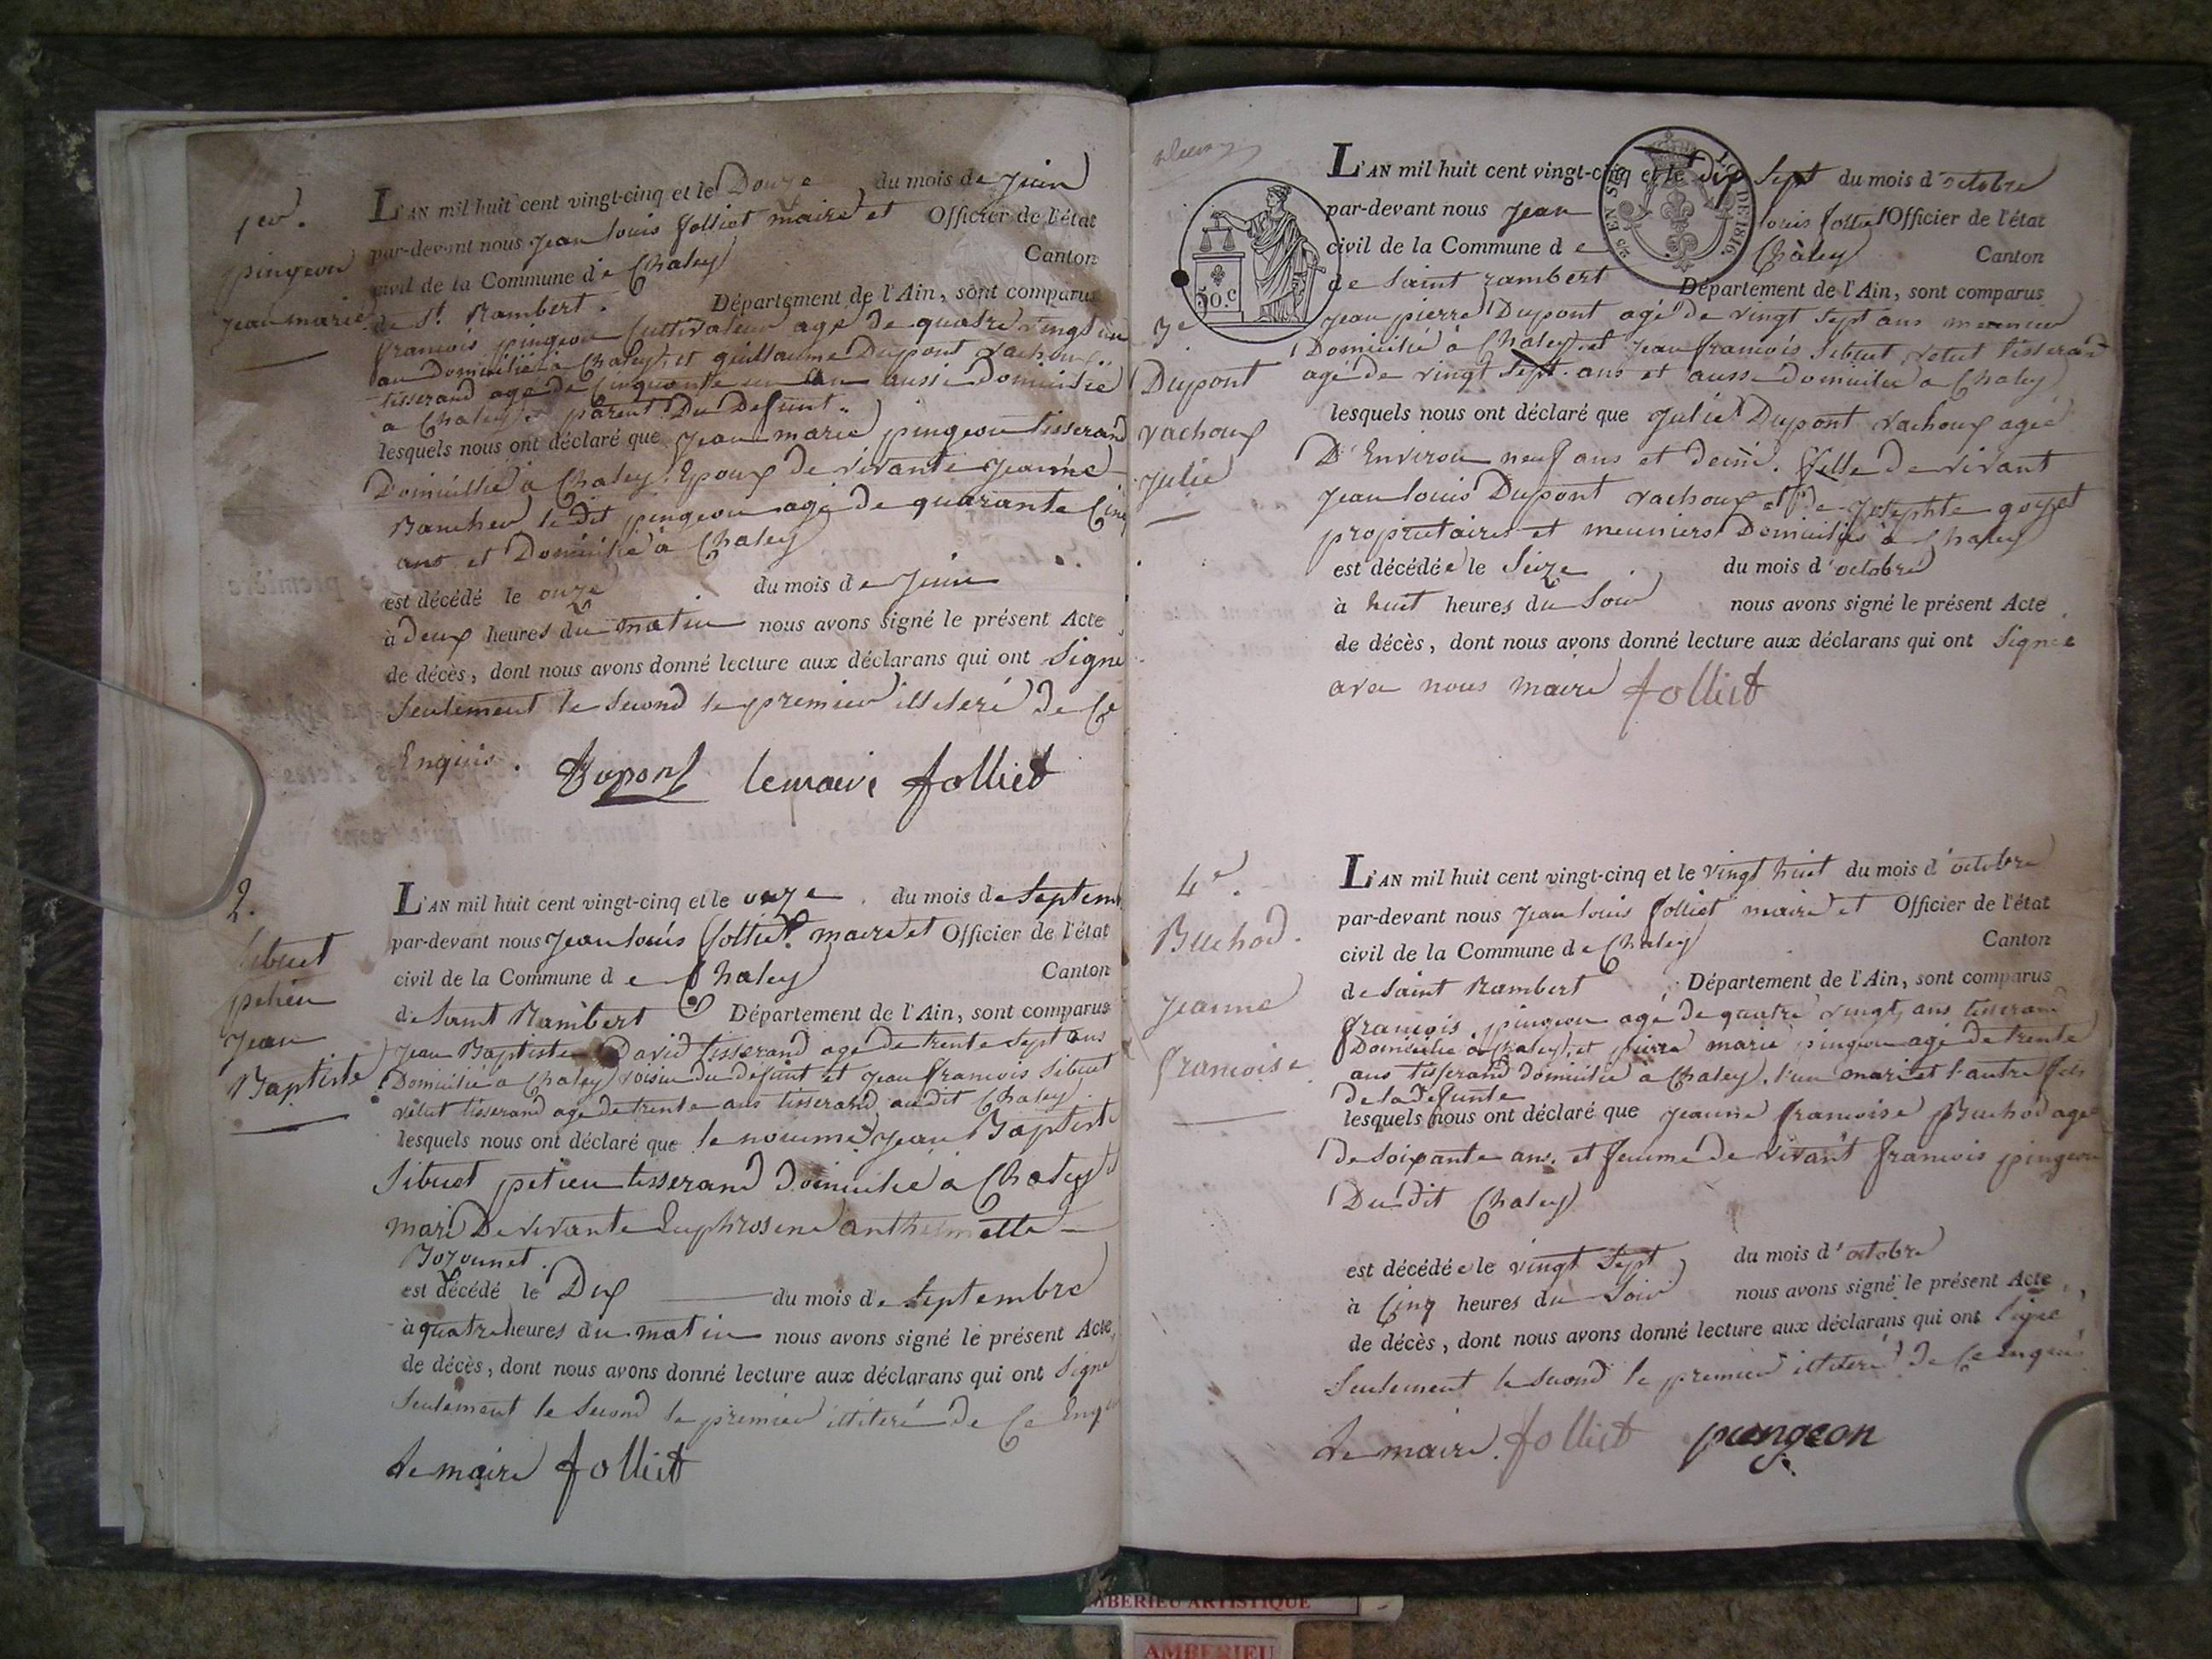 1er.
pingeon
jean marie
L'AN mil huit cent vingt-cinq et le Douze du mois de juin
par-devant nous jean louis folliet maire et Officier de l'état
civil de la Commune de Chaley Canton
de St. Rambert. Département de l'Ain, sont comparus
francois pingeon Cultivateur agé de quatre vingt un
an Domicilié à Chaley, et guillaume Dupont vachoux
tisserand agé de Cinquante un an aussi Domicilié
a Chaley. parent Du Defunt.
lesquels nous ont déclaré que jean marie pingeon tisserand
Domicillié à Chaley. Epoux de vivante jeanne
le dit pingeon agé de quarante Cinq
ans et Domicilié à Chaley
est décédé le onze du mois de juin
à Deux heures du matin nous avons signé le présent Acte
de décès, dont nous avons donné lecture aux déclarans qui ont Signé
Seulement le Second le premier illiteré de Ce
Enquis.
Dupont lemaire folliet
2.
Sibuet
petieu
jean
Baptiste
L'AN mil huit cent vingt-cinq et le onze du mois de Septem
par-devant nous jean louis folliet maire et Officier de l'état
civil de la Commune de Chaley Canton
de Saint Rambert Département de l'Ain, sont comparus
jean Baptiste David tisserand agé de trente Sept ans
Domicilié a Chaley voisin du défunt et jean francois Sibuet
vétut tisserand agé de trente ans tisserand audit Chaley
lesquels nous ont déclaré que le nommé jean Baptiste
Sibuet petieu tisserand Domicilié a Chaley
mari De vivante Euphrosine anthelmette
Bozonnet.
est décédé le Dix du mois de Septembre
à quatre heures du matin nous avons signé le présent Acte,
de décès, dont nous avons donné lecture aux déclarans qui ont Signé
Seulement le Second le premier illiteré de Ce Enq
Le maire folliet
50.c
LOI DE 1816
3e
Dupont
vachoux
julie
L'AN mil huit cent vingt-cinq et le dix Sept du mois d'octobre
par-devant nous jean louis folliet Officier de l'état
civil de la Commune de Chaley Canton
de Saint rambert Département de l'Ain, sont comparus
jean pierre Dupont agé de vingt Sept ans meunier
Domicilié à Chaley, et jean francois Sibuet vetut tisserand
agé de vingt Sept ans et aussi Domicilié a Chaley
lesquels nous ont déclaré que julie Dupont vachoux agée
D'Environ neuf ans et demi. fille de vivant
jean louis Dupont vachoux et de josephte goyet
proprietaires et meuniers Domiciliés à Chaley
est décédée le Seize du mois d'octobre
à huit heures du Soir nous avons signé le présent Acte
de décès, dont nous avons donné lecture aux déclarans qui ont Signé
avec nous maire folliet
4e.
Buchod.
jeanne
francoise
L'AN mil huit cent vingt-cinq et le vingt huit du mois d'octobre
par-devant nous jean louis folliet maire et Officier de l'état
civil de la Commune de Chaley Canton
de Saint Rambert Département de l'Ain, sont comparus
francois pingeon agé de quatre vingt ans tisserand
Domicilié à Chaley, et pierre marie pingeon agé de trente
ans tisserand domicilié à Chaley, l'un mari et l'autre fils
de la defunte
lesquels nous ont déclaré que jeanne francoise Buchod agée
de Soixante ans, et femme de vivant francois pingeon
Du dit Chaley
est décédée le vingt Sept du mois d'octobre
à Cinq heures du Soir nous avons signé le présent Acte,
de décès, dont nous avons donné lecture aux déclarans qui ont Signé
Seulement le Second le premier illiteré de Ce enquis
Le maire. folliet pingeon
AMBERIEU ARTISTIQUE
AMBERIEU